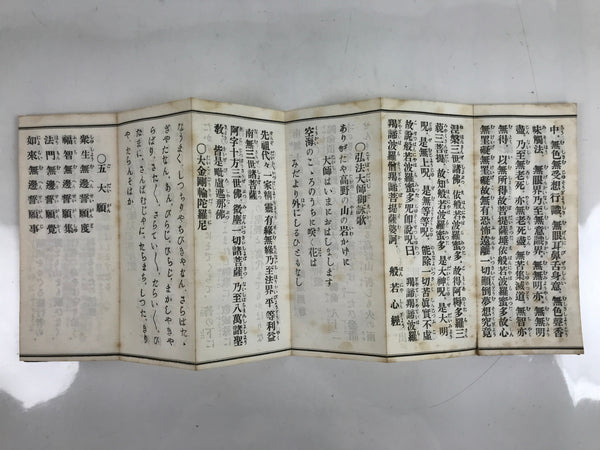 中。無色無受想行識。無眼耳鼻舌身意。無色聲香
味觸法。無眼界乃至無意識界。無無明亦。無無明
盡。乃至無老死。亦無老死盡。無苦集滅道。無智亦
無得。以無所得故菩提薩埵。依般若波羅蜜多故心
無罣礙。無罣礙故無有恐怖遠離一切顚倒夢想究竟
涅槃三世諸佛。依般若波羅蜜多。故得阿耨多羅三
藐三菩提。故知般若波羅蜜多。是大神呪。是大明
呪。是無上呪。是無等等呪。能除一切苦眞實不虛
故說般若波羅蜜多呪卽說呪曰。羯諦羯諦波羅
羯諦波羅僧羯諦菩提薩婆訶 般若心經
〇弘法大師御詠歌
ありがたや高野の山の岩かげに
大師はいまにおはしまします
空海のこゝろのうちに咲く花は
みだより外にしるひともなし
先祖代々一家精靈 有緣無緣乃至法界平等利益
南無三世諸菩薩
阿字十方三世佛 微塵一切諸菩薩 乃至八萬諸聖
敎 皆是毗盧遮那佛
〇大金剛輪陀羅尼
なうまく。しつちりやちびきやなん。さらばた。
ぎやたなん。あん。びらじびらじ。まかしやきや
〇五大願
衆生無邊誓願度
福智無邊誓願集
法門無邊誓願覺
如來無邊誓願事